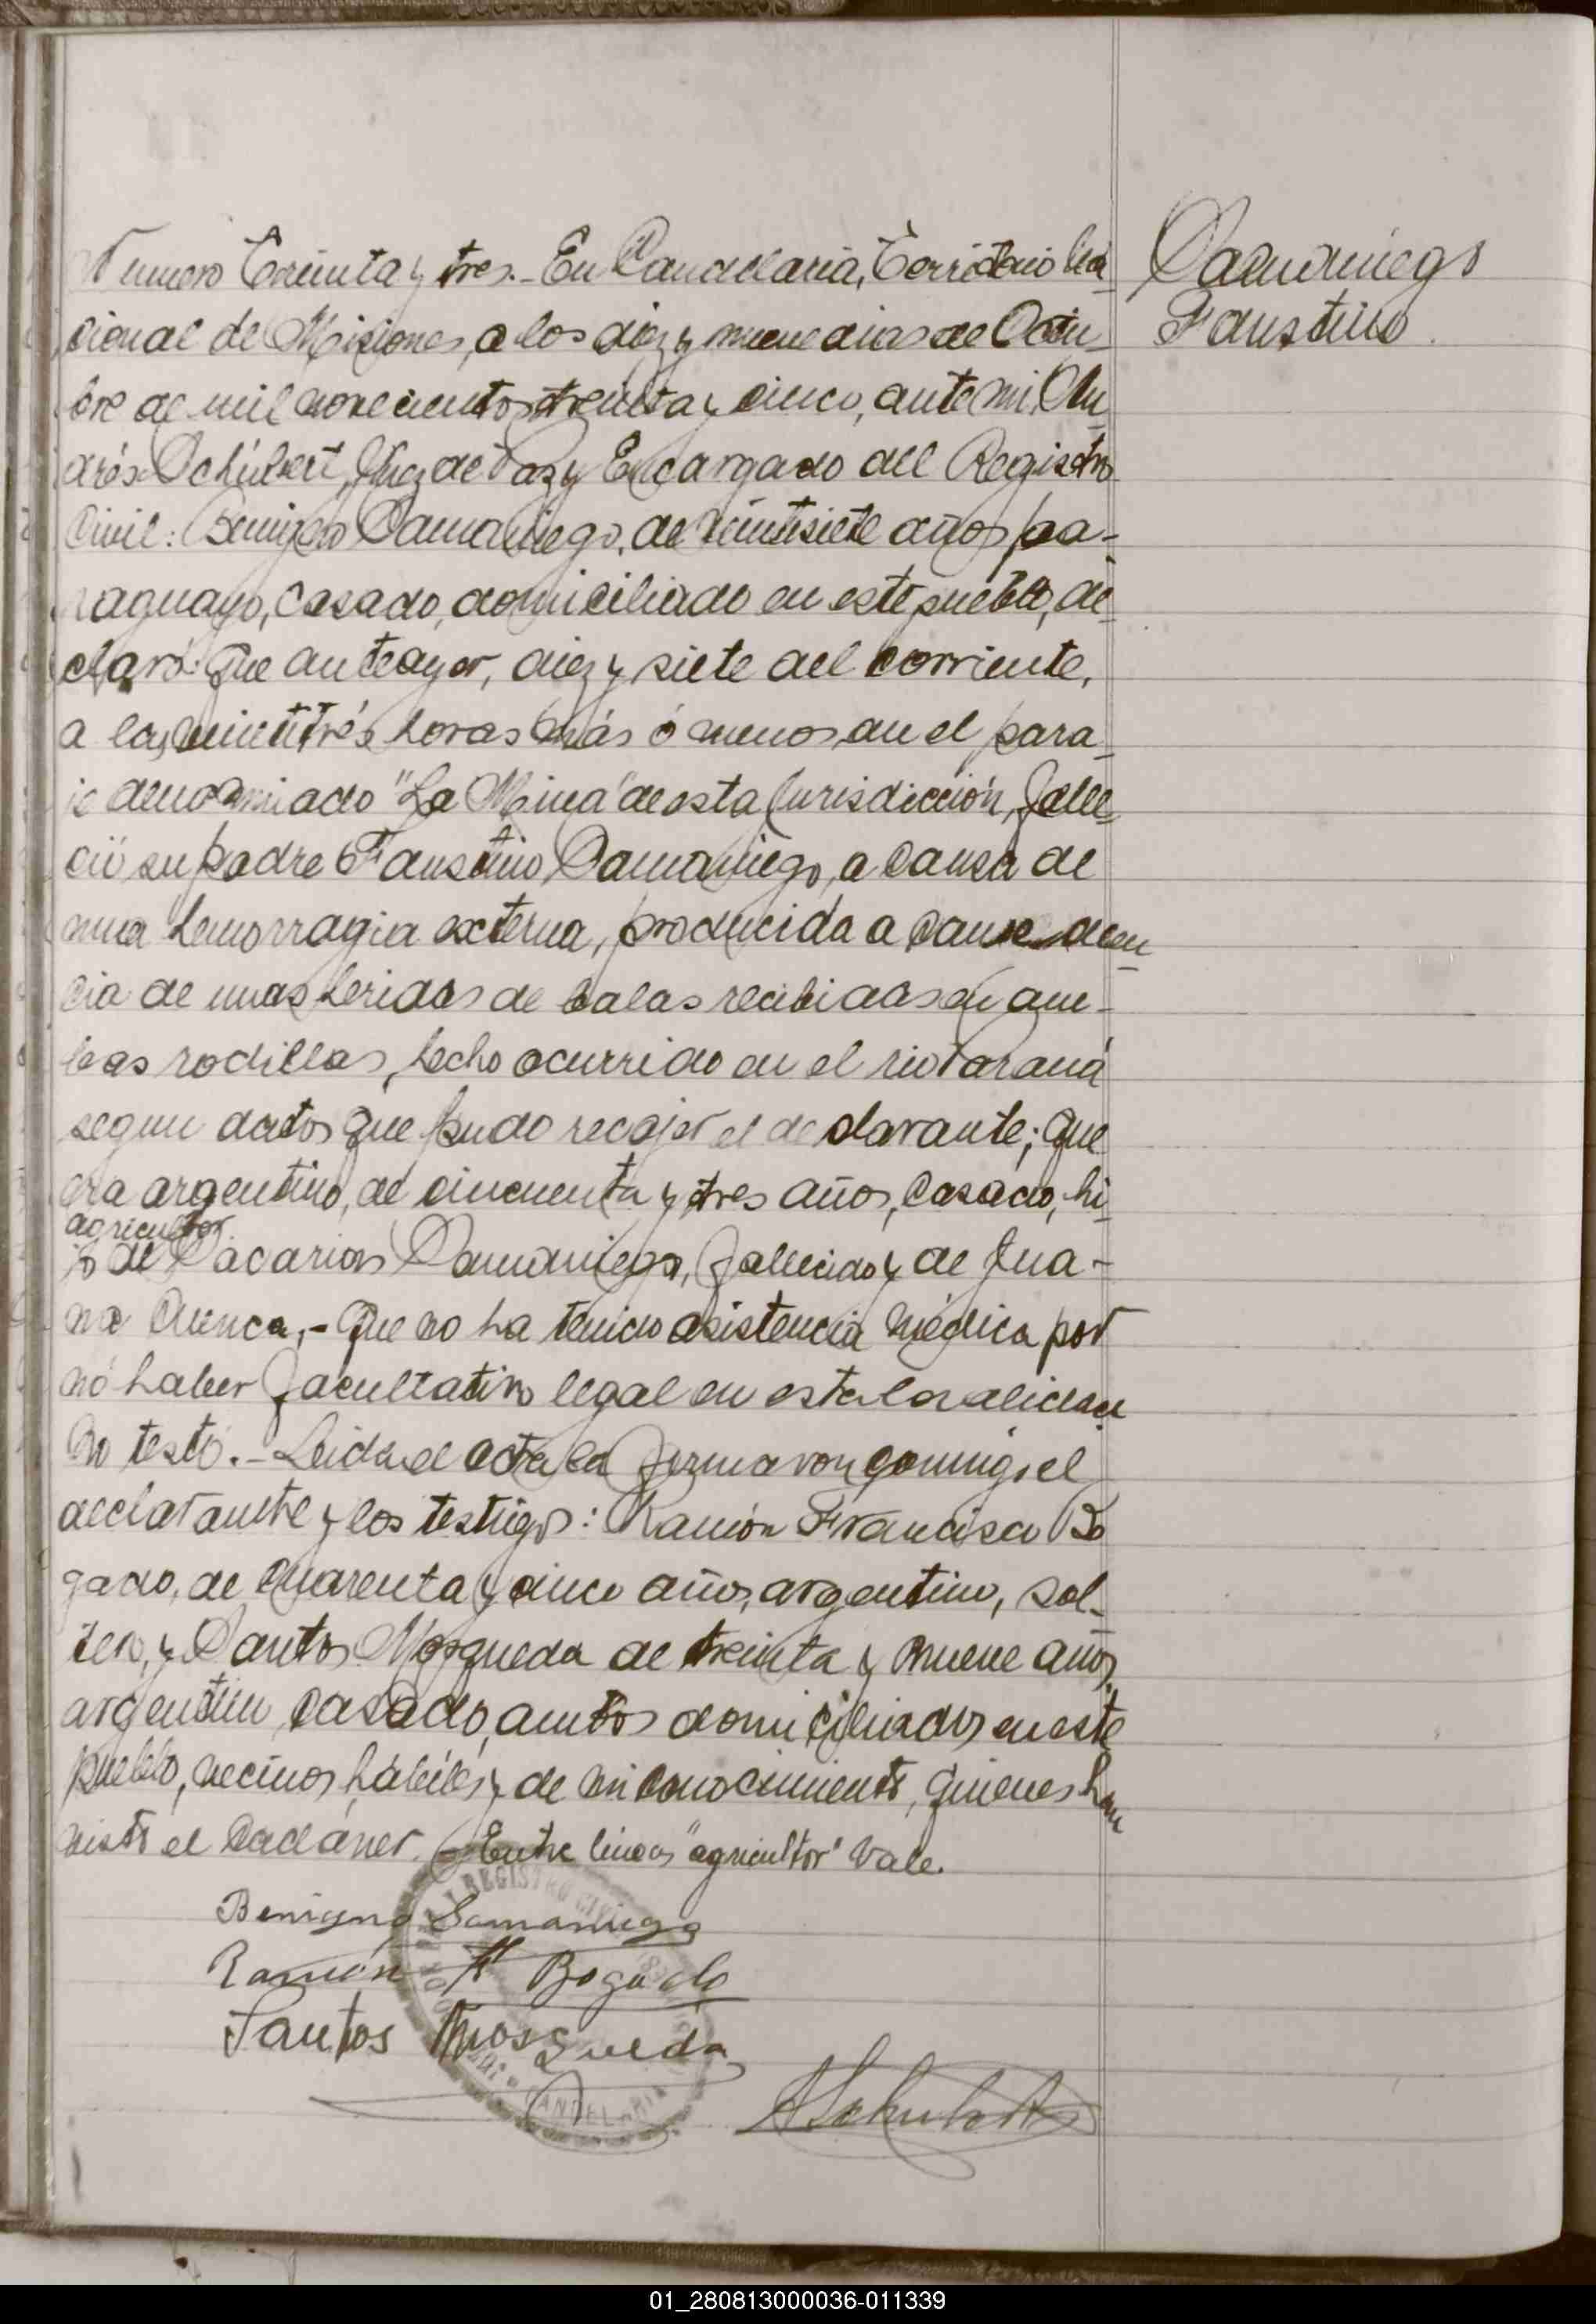 Numero Treinta y tres.- En Candelaria, Territorio Na-
cional de Misiones, a los diez y nueve dias de Octu-
bre de mil novecientos treinta y cinco, ante mi, An-
drés Schúbert, Juez de Paz y Encargado del Registro
Civil: Benigno Samaniego, de veintisiete años, pa-
raguayo, casado, domiciliado en este pueblo, de-
claró: Que anteayer, diez y siete del corriente,
a las veintitrés horas más ó menos en el para-
je denominado "La Mina" de esta Jurisdicción, falle-
ció su padre Faustino Samaniego, a causa de
una hemorragia externa, producida a consecuen-
cia de unas heridas de balas recibidas en am-
bas rodillas, hecho ocurrido en el rio Paraná
segun datos que pudo recojer el declarante; que
era argentino, de cincuenta y tres años, casado, hi-
agricultor
jo de Sacarias Samaniego, fallecido y de Jua-
na Cuenca,- Que no ha tenido asistencia médica por
nó haber facultativo legal en esta localidad
No testó.- Leida el acta la firmaron conmigo el
declarante y los testigos: Ramón Francisco Bo
gado, de cuarenta y cinco años, argentino, sol-
tero, y Santos Mosqueda de treinta y nueve años,
argentino, casado, ambos domiciliados en este
pueblo, vecinos hábiles y de mi conocimiento, quienes han
visto el cadáver.- Entre lineas "agricultor" Vale.
Samaniego
Faustino.
Benigno Samaniego
Ramón F Bogado
Santos Mosqueda
ASchubert
REGISTRO CIVIL
CANDELARIA
01_280813000036-011339